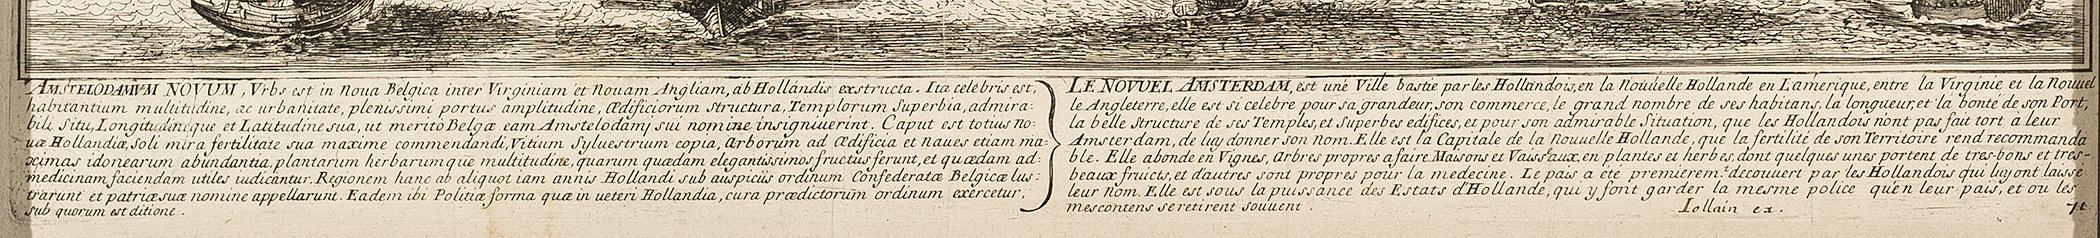 AMSTELODAMVM NOVUM, Vrbs est in Noua Belgica inter Virginiam et Nouam Angliam, ab Hollandis exstructa. Ita celebris est,
habitantium multitudine, ac urbanitate, plenissimi portus amplitudine, Ædificiorum structura, Templorum Superbia, admira:
bili Situ, Longitudinique et Latitudine sua, ut meritò Belgæ eam Amstelodamj sui nomine insigniuerint. Caput est totius No:
uæ Hollandiæ, Soli mira fertilitate sua maxime commendandi, Vitium Syluestrium copia, Arborum ad Ædificia et naues etiam ma:
ximas idonearum abundantia, plantarum herbarumque multitudine, quarum quædam elegantissimos fructus ferunt, et quædam ad:
medicinam faciendam utiles iudicantur. Regionem hanc ab aliquot iam annis Hollandi sub auspiciis ordinum Confederatæ Belgicæ lus:
trarunt et patriæ suæ nomine appellarunt. Eadem ibi Politiæ forma quæ in ueteri Hollandia, cura prædictorum ordinum exercetur,
sub quorum est ditione.
LE NOVUEL AMSTERDAM, est uné Ville bastie par les Hollandois, en la Nouuelle Hollande en L'amerique, entre la Virginie et la Nouuel
le Angleterre, elle est si celebre pour sa grandeur, son commerce, le grand nombre de ses habitans, la longueur, et la bonte de son Port,
la belle Structure de ses Temples, et Superbes edifices, et pour son admirable Situation, que les Hollandois n'ont pas fait tort a leur
Amsterdam, de luy donner son nom. Elle est la Capitale de la Nouuelle Hollande, que la fertilité de son Territoire rend recommanda
ble. Elle abonde en Vignes, Arbres propres a faire Maisons et Vaisseaux, en plantes et herbes, dont quelques unes portent de tres-bons et tres-
beaux fruicts, et d'autres sont propres pour la medecine. Le pais a ete premierem.t decouuert par les Hollandois qui luy ont laisse
leur nom. Elle est sous la puissance des Estats d'Hollande, qui y font garder la mesme police qu'en leur pais, et ou les
mescontens se retirent souuent.
Iollain ex.
71.